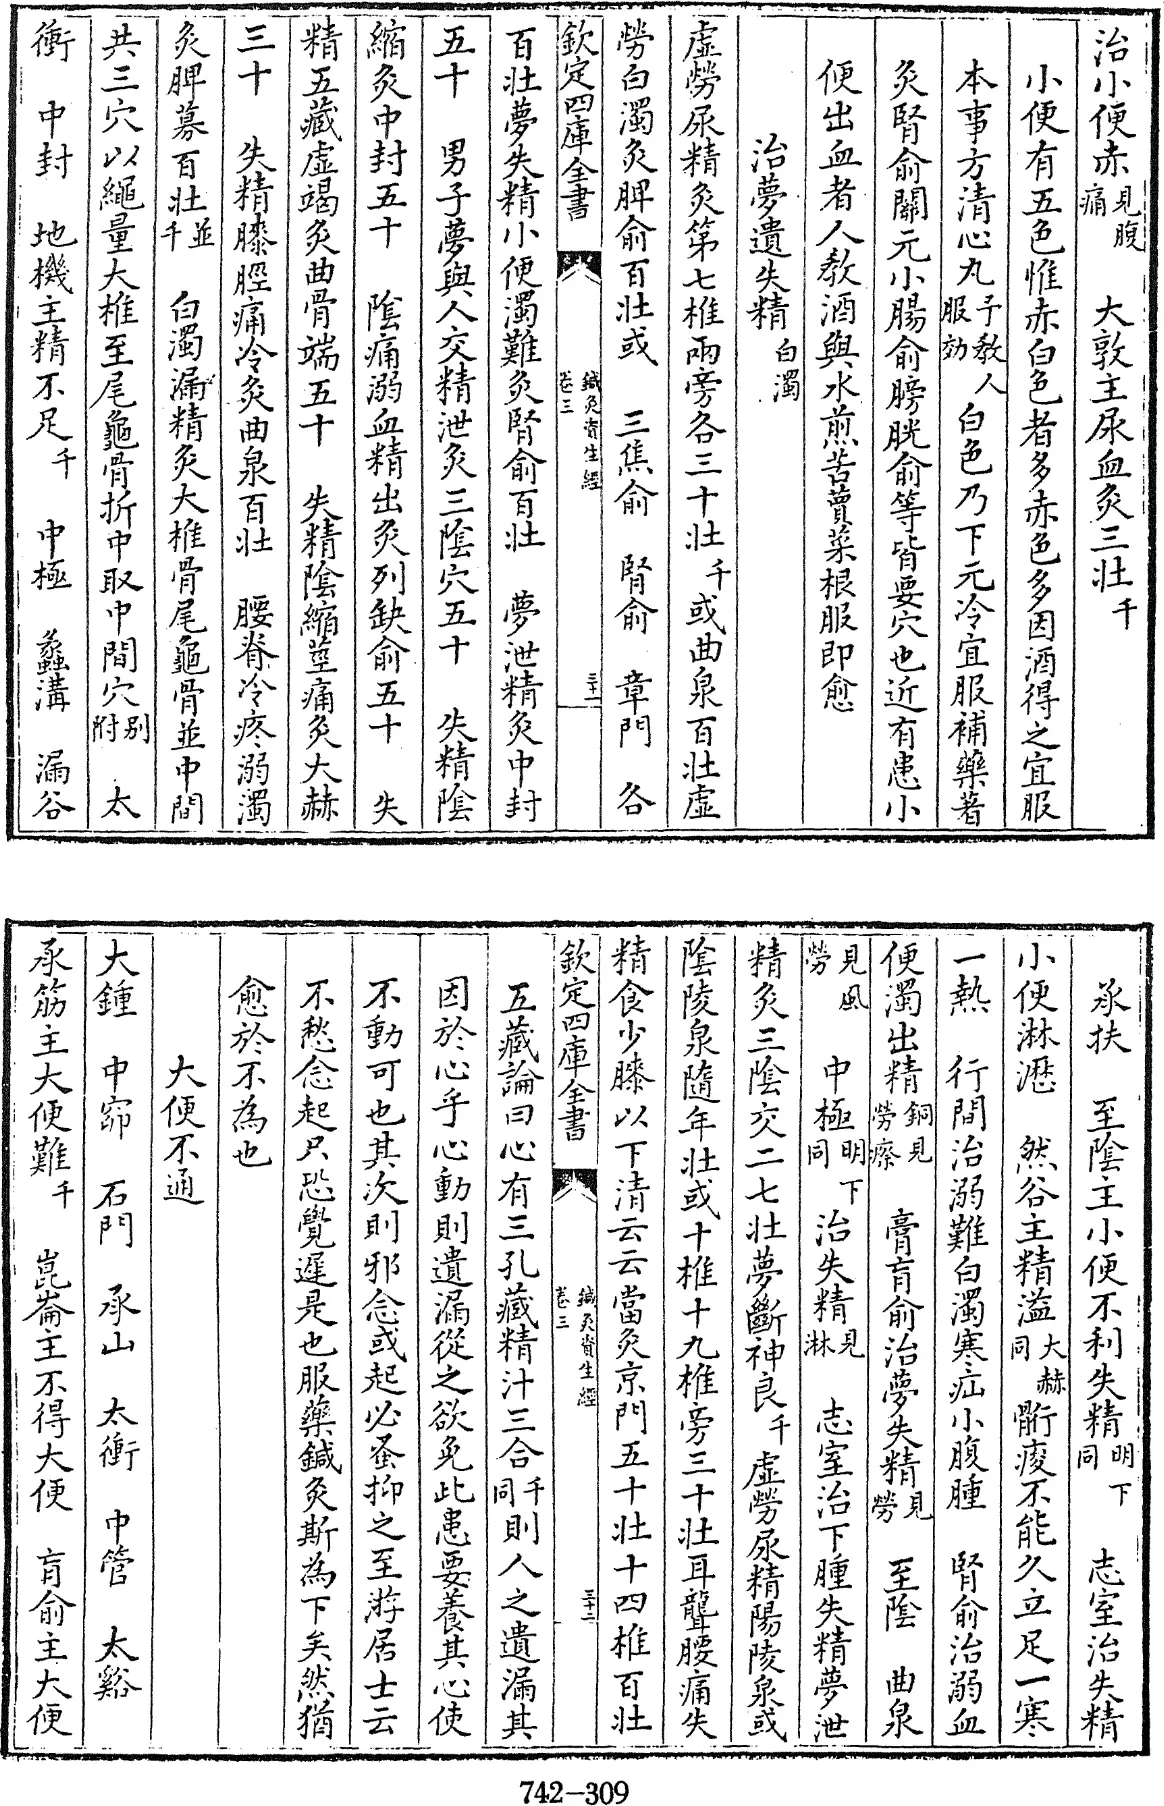 治小便赤見腹痛　大敦主尿血灸三壯千
小便有五色惟赤白色者多赤色多因酒得之宜服
本事方清心丸予教人服効白色乃下元冷宜服補藥著
灸腎俞關元小腸俞膀胱俞等皆要穴也近有患小
便出血者人教酒與水煎苦蕒菜根服即愈
治夢遺失精白濁
虛勞尿精灸第七椎兩旁各三十壯千或曲泉百壯虛
勞白濁灸脾俞百壯或　三焦俞　腎俞　章門　各
欽定四庫全書　鍼灸資生經卷三　三十一
百壯夢失精小便濁難灸腎俞百壯　夢泄精灸中封
五十　男子夢與人交精泄灸三陰穴五十　失精陰
縮灸中封五十　陰痛溺血精出灸列缺俞五十　失
精五藏虛竭灸曲骨端五十　失精陰縮莖痛灸大赫
三十　失精膝脛痛冷灸曲泉百壯　腰脊冷疼溺濁
灸脾募百壯並千　白濁漏精灸大椎骨尾龜骨並中間
共三穴以繩量大椎至尾龜骨折中取中間穴別附　太
衝　中封　地機主精不足千　中極　蠡溝　漏谷
承扶　至陰主小便不利失精明下同　志室治失精
小便淋瀝　然谷主精溢大赫同䯒痠不能久立足一寒
一熱　行間治溺難白濁寒疝小腹腫　腎俞治溺血
便濁出精銅見勞瘵　膏肓俞治夢失精見勞　至陰　曲泉
見風勞　中極明下同治失精見淋　志室治下腫失精夢泄
精灸三陰交二七壯夢斷神良千　虛勞尿精陽陵泉或
陰陵泉隨年壯或十椎十九椎旁三十壯耳聾腰痛失
精食少膝以下清云云當灸京門五十壯十四椎百壯
欽定四庫全書　鍼灸資生經卷三　三十二
五藏論曰心有三孔藏精汁三合千同則人之遺漏其
因於心乎心動則遺漏從之欲免此患要養其心使
不動可也其次則邪念或起必蚤抑之至游居士云
不愁念起只恐覺遲是也服藥鍼灸斯為下矣然猶
愈於不為也
大便不通
大鍾　中窌　石門　承山　太衝　中管　太谿
承筋主大便難千　崑崙主不得大便　肓俞主大便
742-309